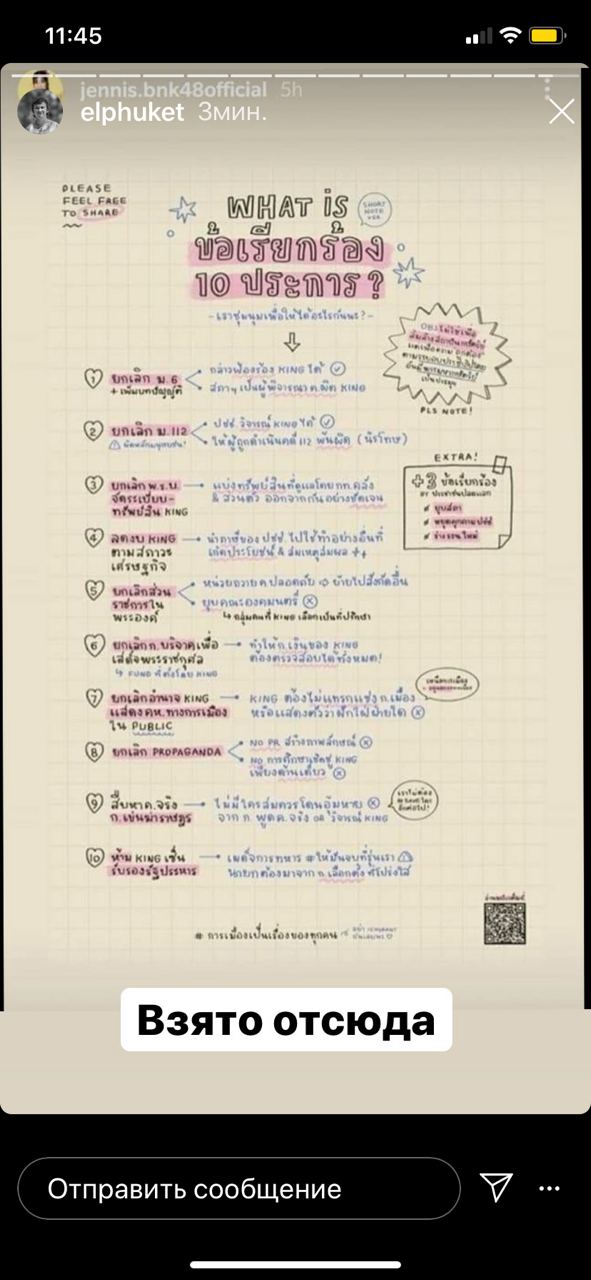 11:45
jennis.bnk48official 5h
elphuket 3мин.
PLEASE
FEEL FREE
TO SHARE
WHAT IS
SHORT
NOTE
VER.
ข้อเรียกร้อง
10 ประการ?
-เราชุมนุมเพื่อให้ได้อะไรกันนะ?-
PLS NOTE!
① ยกเลิก ม.6
+ เพิ่มบทบัญญัติ
กล่าวฟ้องร้อง KING ได้
สภาฯ เป็นผู้พิจารณา ค.ผิด KING
② ยกเลิก ม.112
ปชช. วิจารณ์ KING ได้
ให้ผู้ถูกดำเนินคดี 112 พ้นผิด (นิรโทษ)
EXTRA!
+3 ข้อเรียกร้อง
ยุบสภา
หยุดคุกคามปชช
ร่าง รธน.ใหม่
③ ยกเลิก พ.ร.บ.
จัดระเบียบ-
ทรัพย์สิน KING
แบ่งทรัพย์สินที่ดูแลโดย กท.คลัง
& ส่วนตัว ออกจากกันอย่างชัดเจน
④ ลดงบ KING
ตามสภาวะ
เศรษฐกิจ
นำภาษีของ ปชช. ไปใช้ทำอย่างอื่นที่
เกิดประโยชน์ & สมเหตุสมผล ++
⑤ ยกเลิกส่วน
ราชการใน
พระองค์
หน่วยถวาย ค.ปลอดภัย ⇨ ย้ายไปสังกัดอื่น
ยุบคณะองคมนตรี
↳ กลุ่มคนที่ KING เลือกเป็นที่ปรึกษา
⑥ ยกเลิก ก.บริจาคเพื่อ
เสด็จพระราชกุศล
↳ FUND ที่ตั้งโดย KING
ทำให้ ก.เงินของ KING
ต้องตรวจสอบได้ทั้งหมด!
⑦ ยกเลิกอำนาจ KING
แสดง คห. ทางการเมือง
ใน PUBLIC
KING ต้องไม่แทรกแซง ก.เมือง
หรือแสดงตัวว่าฝักใฝ่ฝ่ายใด
⑧ ยกเลิก PROPAGANDA
NO PR สร้างภาพลักษณ์
NO การศึกษาเชิดชู KING
เพียงด้านเดียว
⑨ สืบหา ค.จริง
ก.เข่นฆ่าราษฎร
ไม่มีใครสมควรโดนอุ้มหาย
จาก ก. พูด ค.จริง OR วิจารณ์ KING
⑩ ห้าม KING เซ็น
รับรองรัฐประหาร
เผด็จการทหาร #ให้มันจบที่รุ่นเรา
นายกต้องมาจาก ก.เลือกตั้ง ที่โปร่งใส
# การเมืองเป็นเรื่องของทุกคน
Взято отсюда
Отправить сообщение